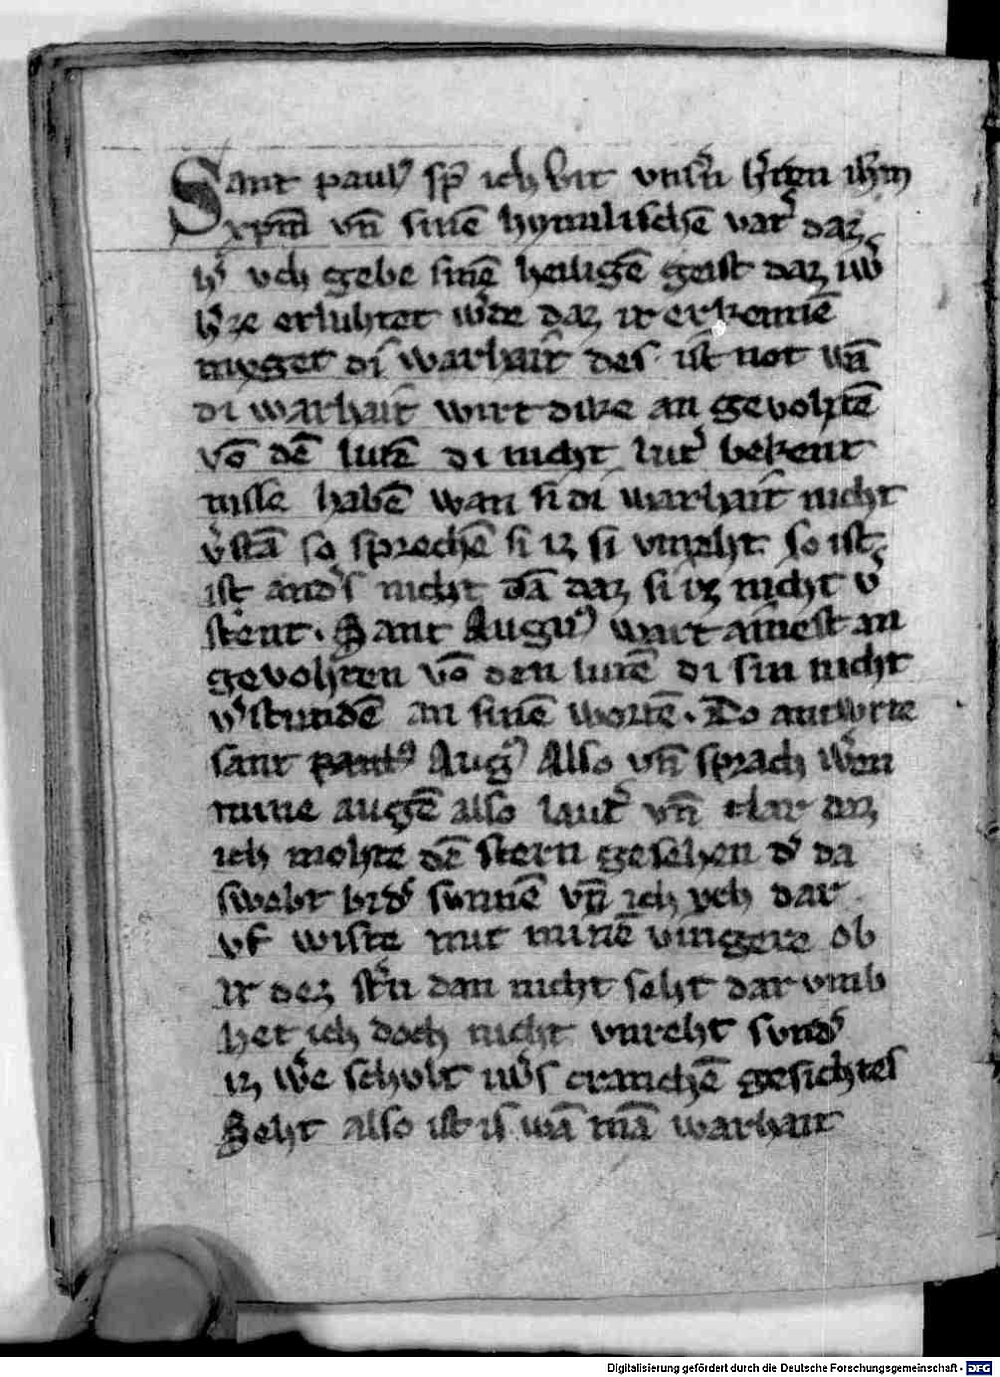 Sant paul᾿ sp̄ ich bit vnsn̄ h᾿ren ih̄m
xp̄m vn̄ sinē hymilischē vat᾿ daz
h᾿ vch gebe sinē heiligē geist daz iw᾿
h᾿ze erluhtet w᾿de daz ir erkennē
muget di warhait des ist not wā
di warhait wirt dike an gevohtē
vō dē lutē di nicht lut᾿ bekent
nisse habē wan si di warhait nicht
v᾿stā so sprechē si iz si vnreht so ist
ist and᾿s nicht dā daz si iz nicht v᾿
stent. Sant Augu᾿ wart ainest an
gevohten vō den lutē di sin nicht
v᾿stundē an sinē wortē. Do antwrte
sant paul᾿ Aug᾿ Also vn̄ sprach w᾿en
mine augē also laut᾿ vn̄ clar daz
ich mohte dē stern gesehen d᾿ da
swebt bi d᾿ sunnē vn̄ ich vch dar
vf wiste mit minē vingere ob
ir dez st᾿n dan nicht seht dar vmb
het ich doch nicht vnreht svnd᾿
iz w᾿e schvlt iw᾿s cranchē gesichtes
Seht also ist is wā mā warhait
Digitalisierung gefördert durch die Deutsche Forschungsgemeinschaft - DFG